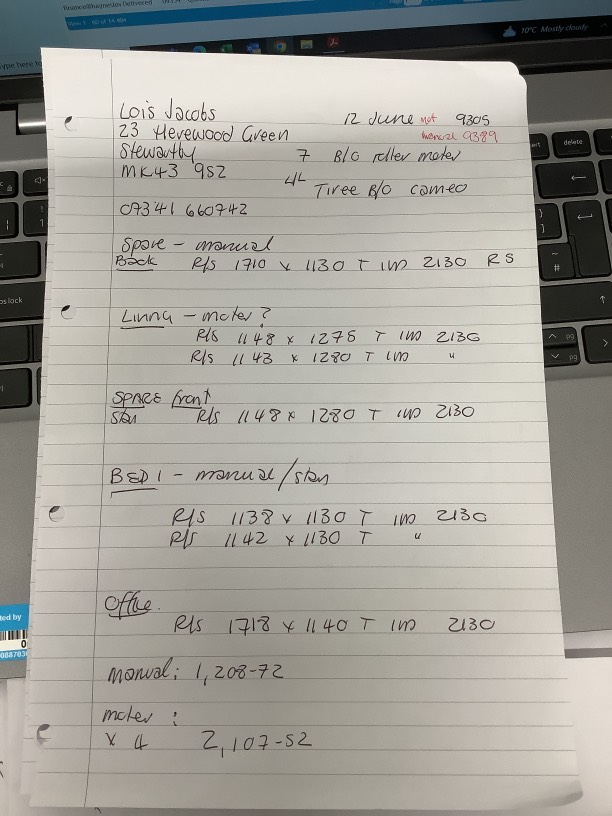 10°C Mostly cloudy
Lois Jacobs
12 June mot 9305
23 Herewood Green
manual 9389
Stewartby
7 B/O roller moter
MK43 9SZ
Tiree B/O cameo
07341 660742
Spare - manual
Back R/S 1710 x 1130 T IM 2130 RS
Living - moter?
R/S 1148 x 1275 T IM 2130
R/S 1143 x 1280 T IM "
SPARE front
Stan R/S 1148 x 1280 T IM 2130
BED 1 - manual/stan
R/S 1138 x 1130 T IM 2130
R/S 1142 x 1130 T "
Office.
R/S 1718 x 1140 T IM 2130
manual: 1,208-72
moter :
x 4 2,107-52
delete